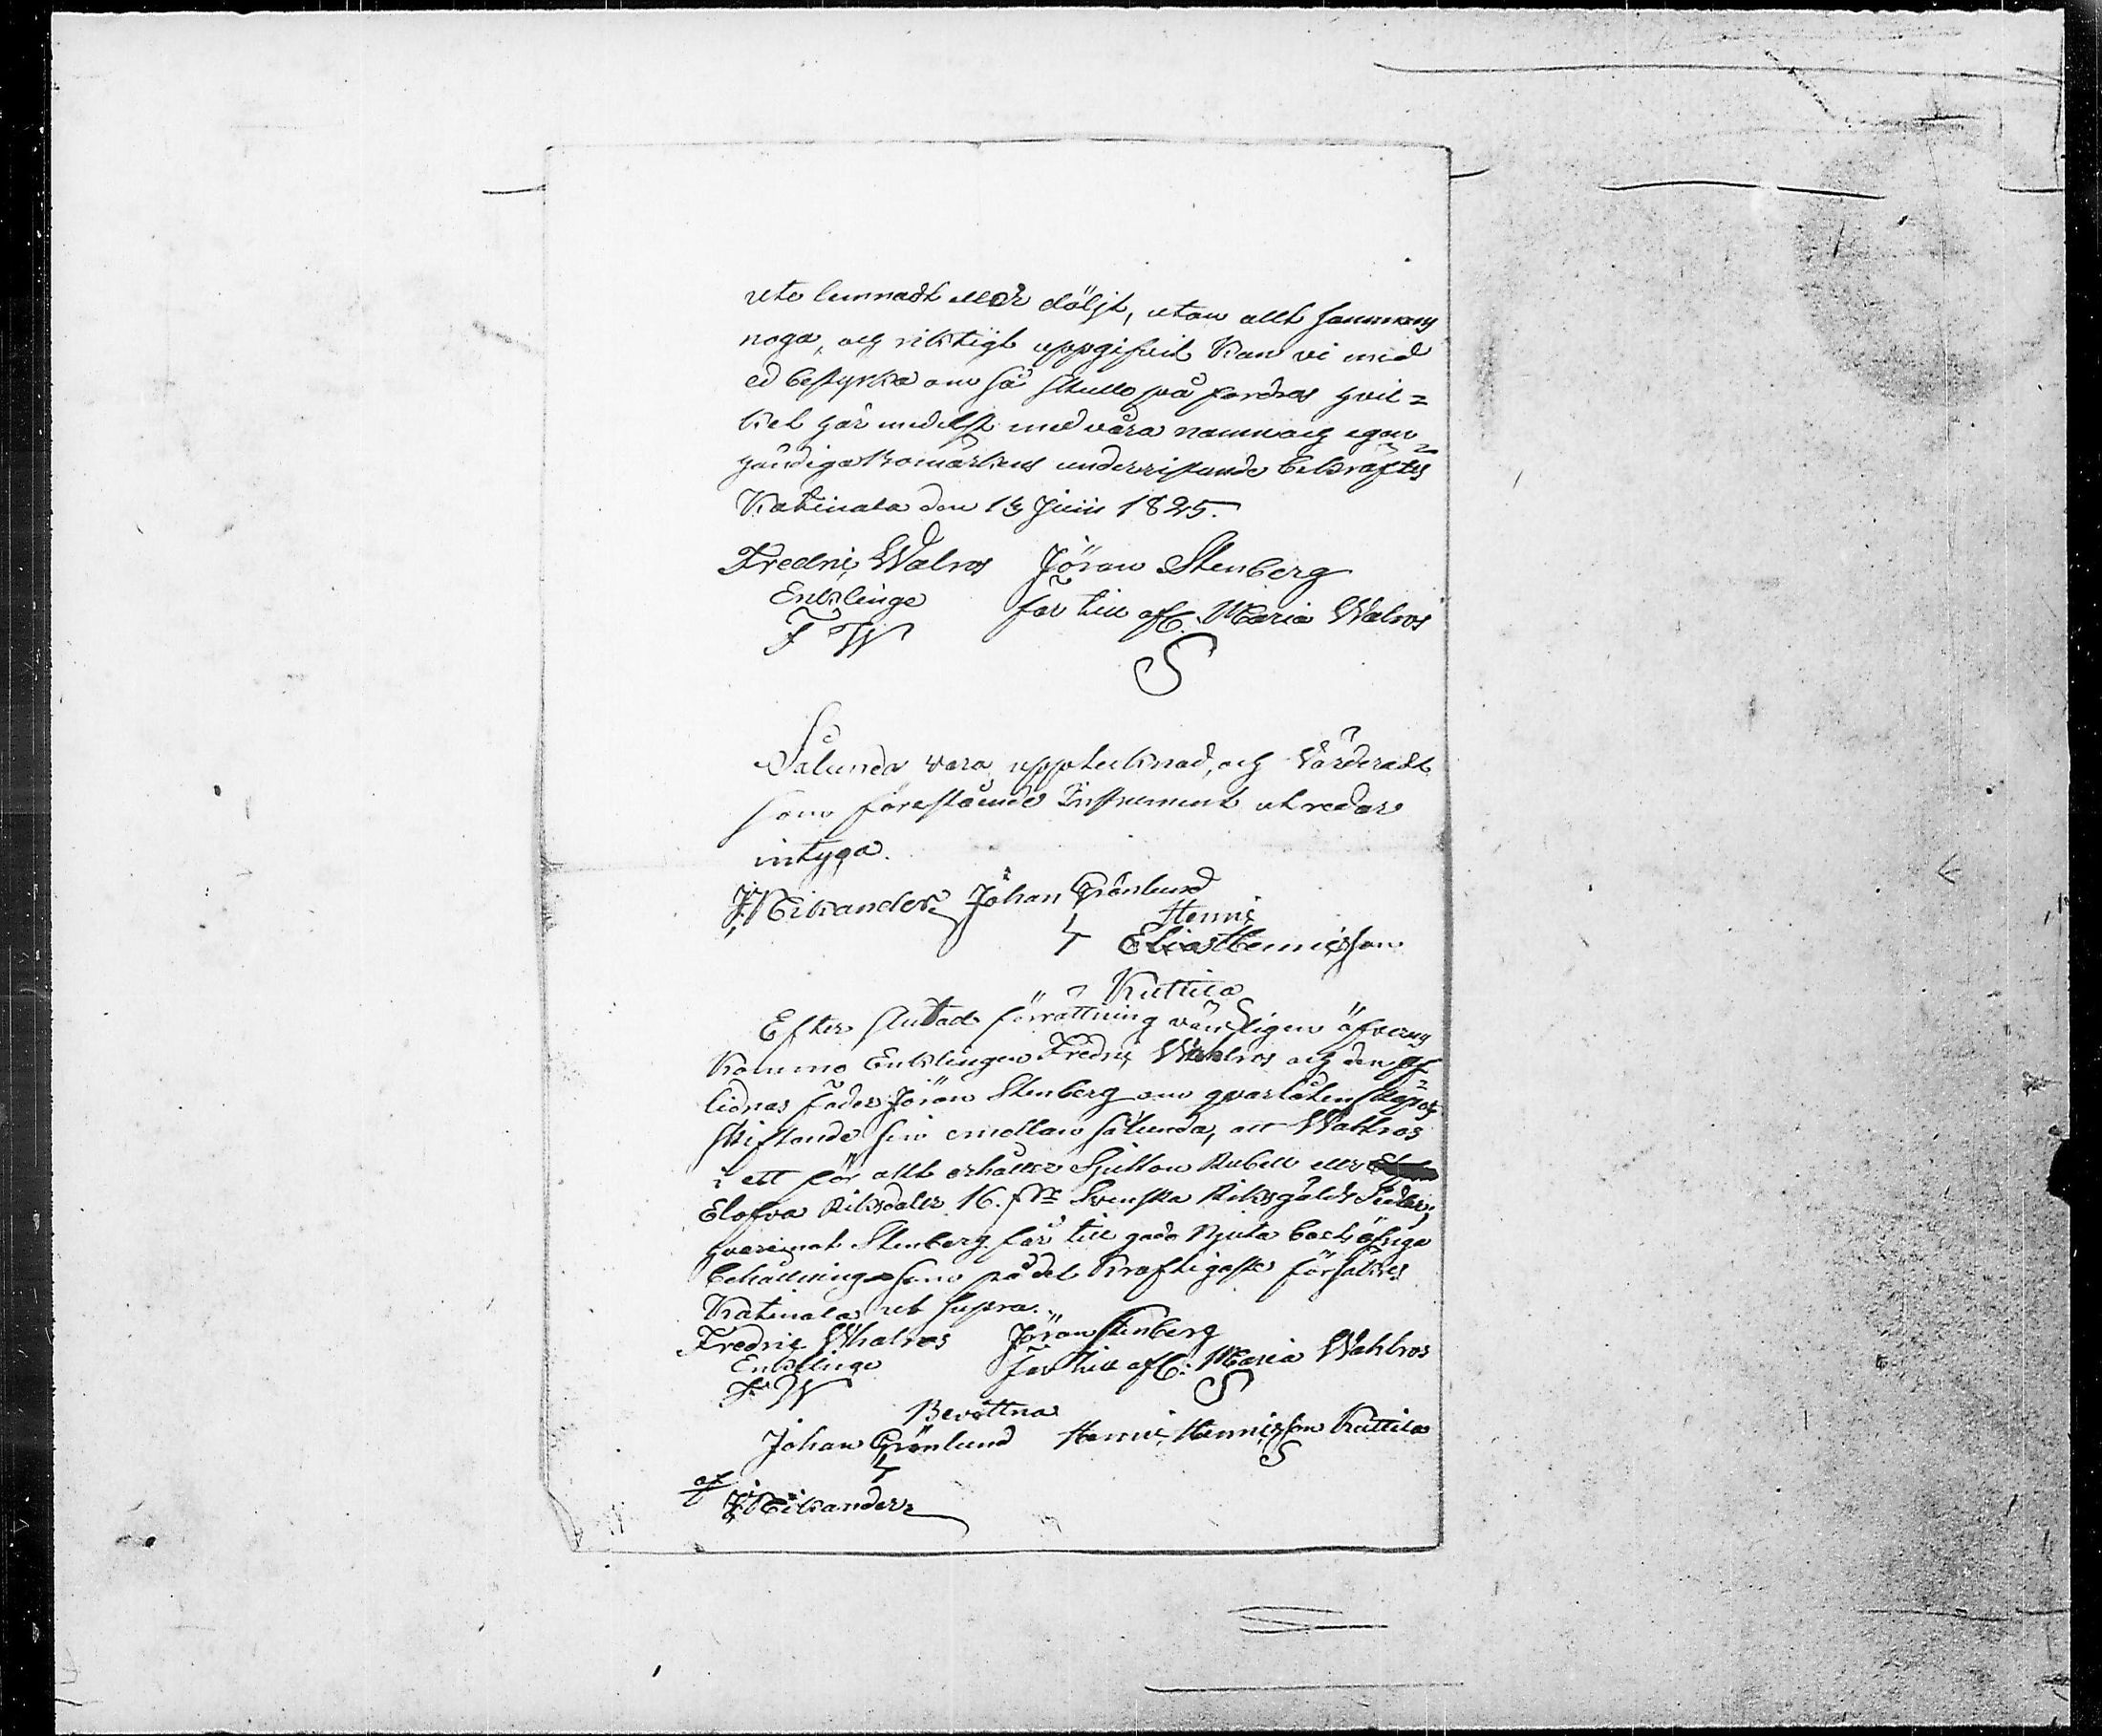 ute lemnadt eller döljt, utan allt sammans
noga, och riktigt uppgifvit kan vi med
ed bestyrka om så skulle på fordras hvil=
ket här medelst med våra namn och egen=
händiga bomärkens underritande bekräftes
Katinala den 13 Junii 1825.
Fredric Walros Jöran Stenberg
Enklinge far till afl. Maria Walros
F W S
Sålunda vara upptecknad, och Värderadt
som förestående Instrument utredar
intyga.
J. Nikander Johan Grönlund
Henric
Elias Henricsson
Kuttila
Efter slutad förrättning vänligen öfverens
komme Enklingen Fredric Wahlros och den af=
lidnas fader Jöran Stenberg om qvarlåtenskapens
skiftande sin emellan sålunda, att Wahlros
i ett för allt erhåller Sjutton Rubell eller
Elofva Riksdaler 16. sk. Svenska Riksgälds Sedlar;
hvaremot Stenberg får till goda Njuta bars öfriga
behållning som på det kraftigaste försäkres
Katinala ut supra.
Fredric Whalros Jöran Stenberg
Enklinge far till afl. Maria Wahlros
F W S
Bevittna
Johan Grönlund Henric Henricsson Kuttila
S
af
J. Nikander